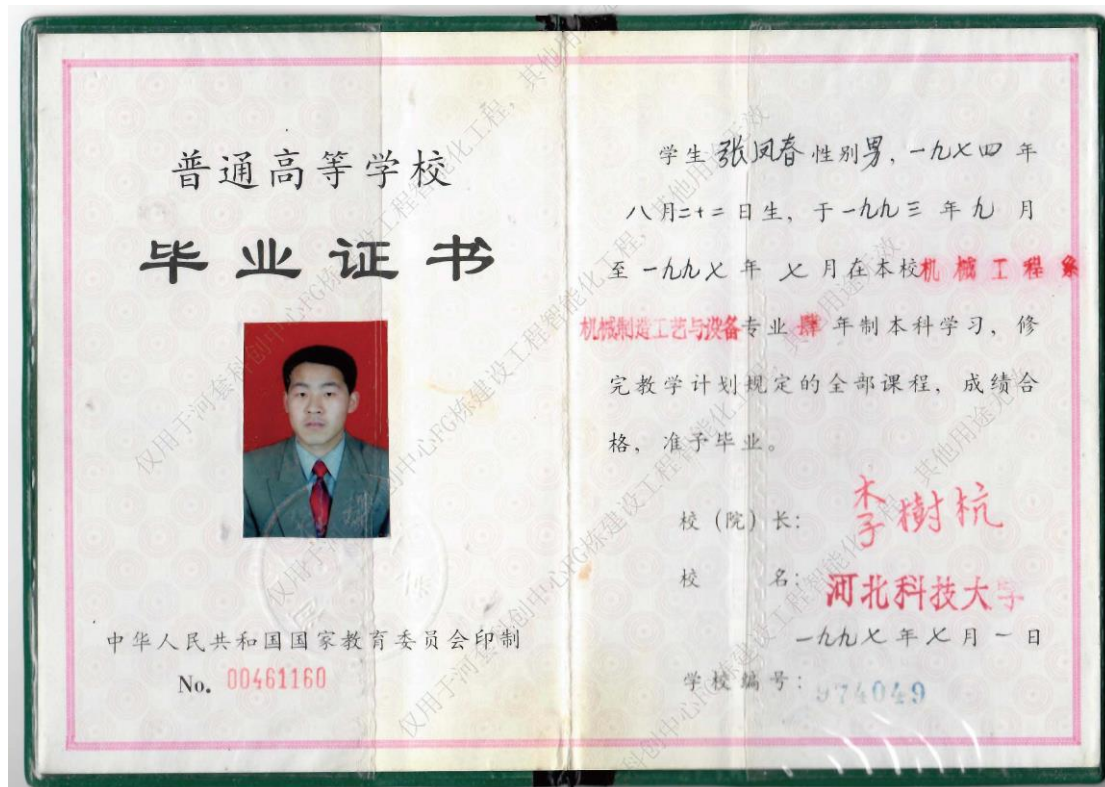 普通高等学校
毕业证书
中华人民共和国国家教育委员会印制
No. 00461160
学生 张凤春 性别 男，一九七四 年
八 月二十二 日生，于一九九三 年 九 月
至 一九九七 年 七 月在本校机械工程系
机械制造工艺与设备专业 肆 年制本科学习，修
完教学计划规定的全部课程，成绩合
格，准予毕业。
校（院）长：李樹杭
校 名：河北科技大学
一九九七 年 七 月 一 日
学校编号：974049
仅用于河套科创中心FG栋建设工程智能化工程，其他用途无效